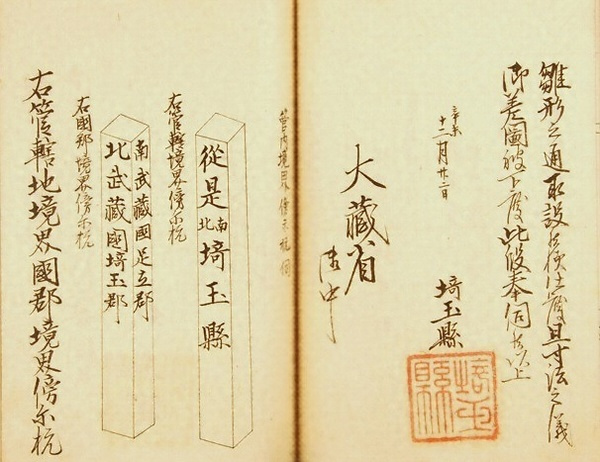 雛形之通取設候様仕度且寸法之儀
御差圖被下度此段奉伺候以上
辛未
十二月廿二日
埼玉縣
埼玉縣
大藏省
御中
管内境界傍示杭伺
從是南北埼玉縣
右管轄境界傍尓杭
南武藏國足立郡
北武藏國埼玉郡
右國郡境界傍尓杭
右管轄地境界國郡境界傍尓杭